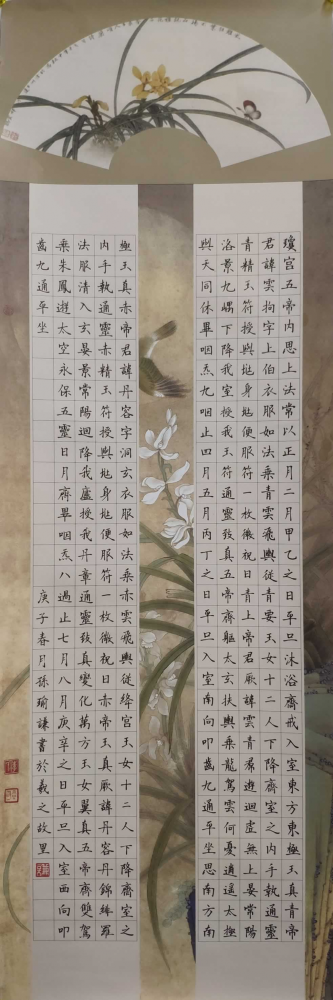 瓊宮五帝内思上法常以正月二月甲乙之日平旦沐浴齋戒入室東方東極玉真青帝
君諱雲拘字上伯衣服如法乘青雲飛輿從青要玉女十二人下降齋室之内手執通靈
青精玉符授與兆身兆便服符一枚微祝日青上帝君厥諱雲青羣遊迴虚無上晏常陽
洛景九嵎下降我室授我玉符通靈致真五帝齊軀太玄扶輿乘龍駕雲何憂遥遥太極
與天同休畢咽炁九咽止四月五月丙丁之日平旦入室南向叩齒九通平坐思南方南
極玉真赤帝君諱丹容字洞玄衣服如法乘赤雲飛輿從絳宮玉女十二人下降齋室之
内手執通靈赤精玉符授與兆身兆便服符一枚微祝日赤帝玉真厥諱丹容丹錦緋羅
法服清入玄晏景常陽迴降我廬授我丹章通靈致真變化萬方玉女翼真五帝齊雙駕
乘朱鳳遊太空永保五靈日月齊畢咽炁八過止七月八月庚辛之日平旦入室西向叩
齒九通平坐
庚子春月孫瑜謙書於羲之故里